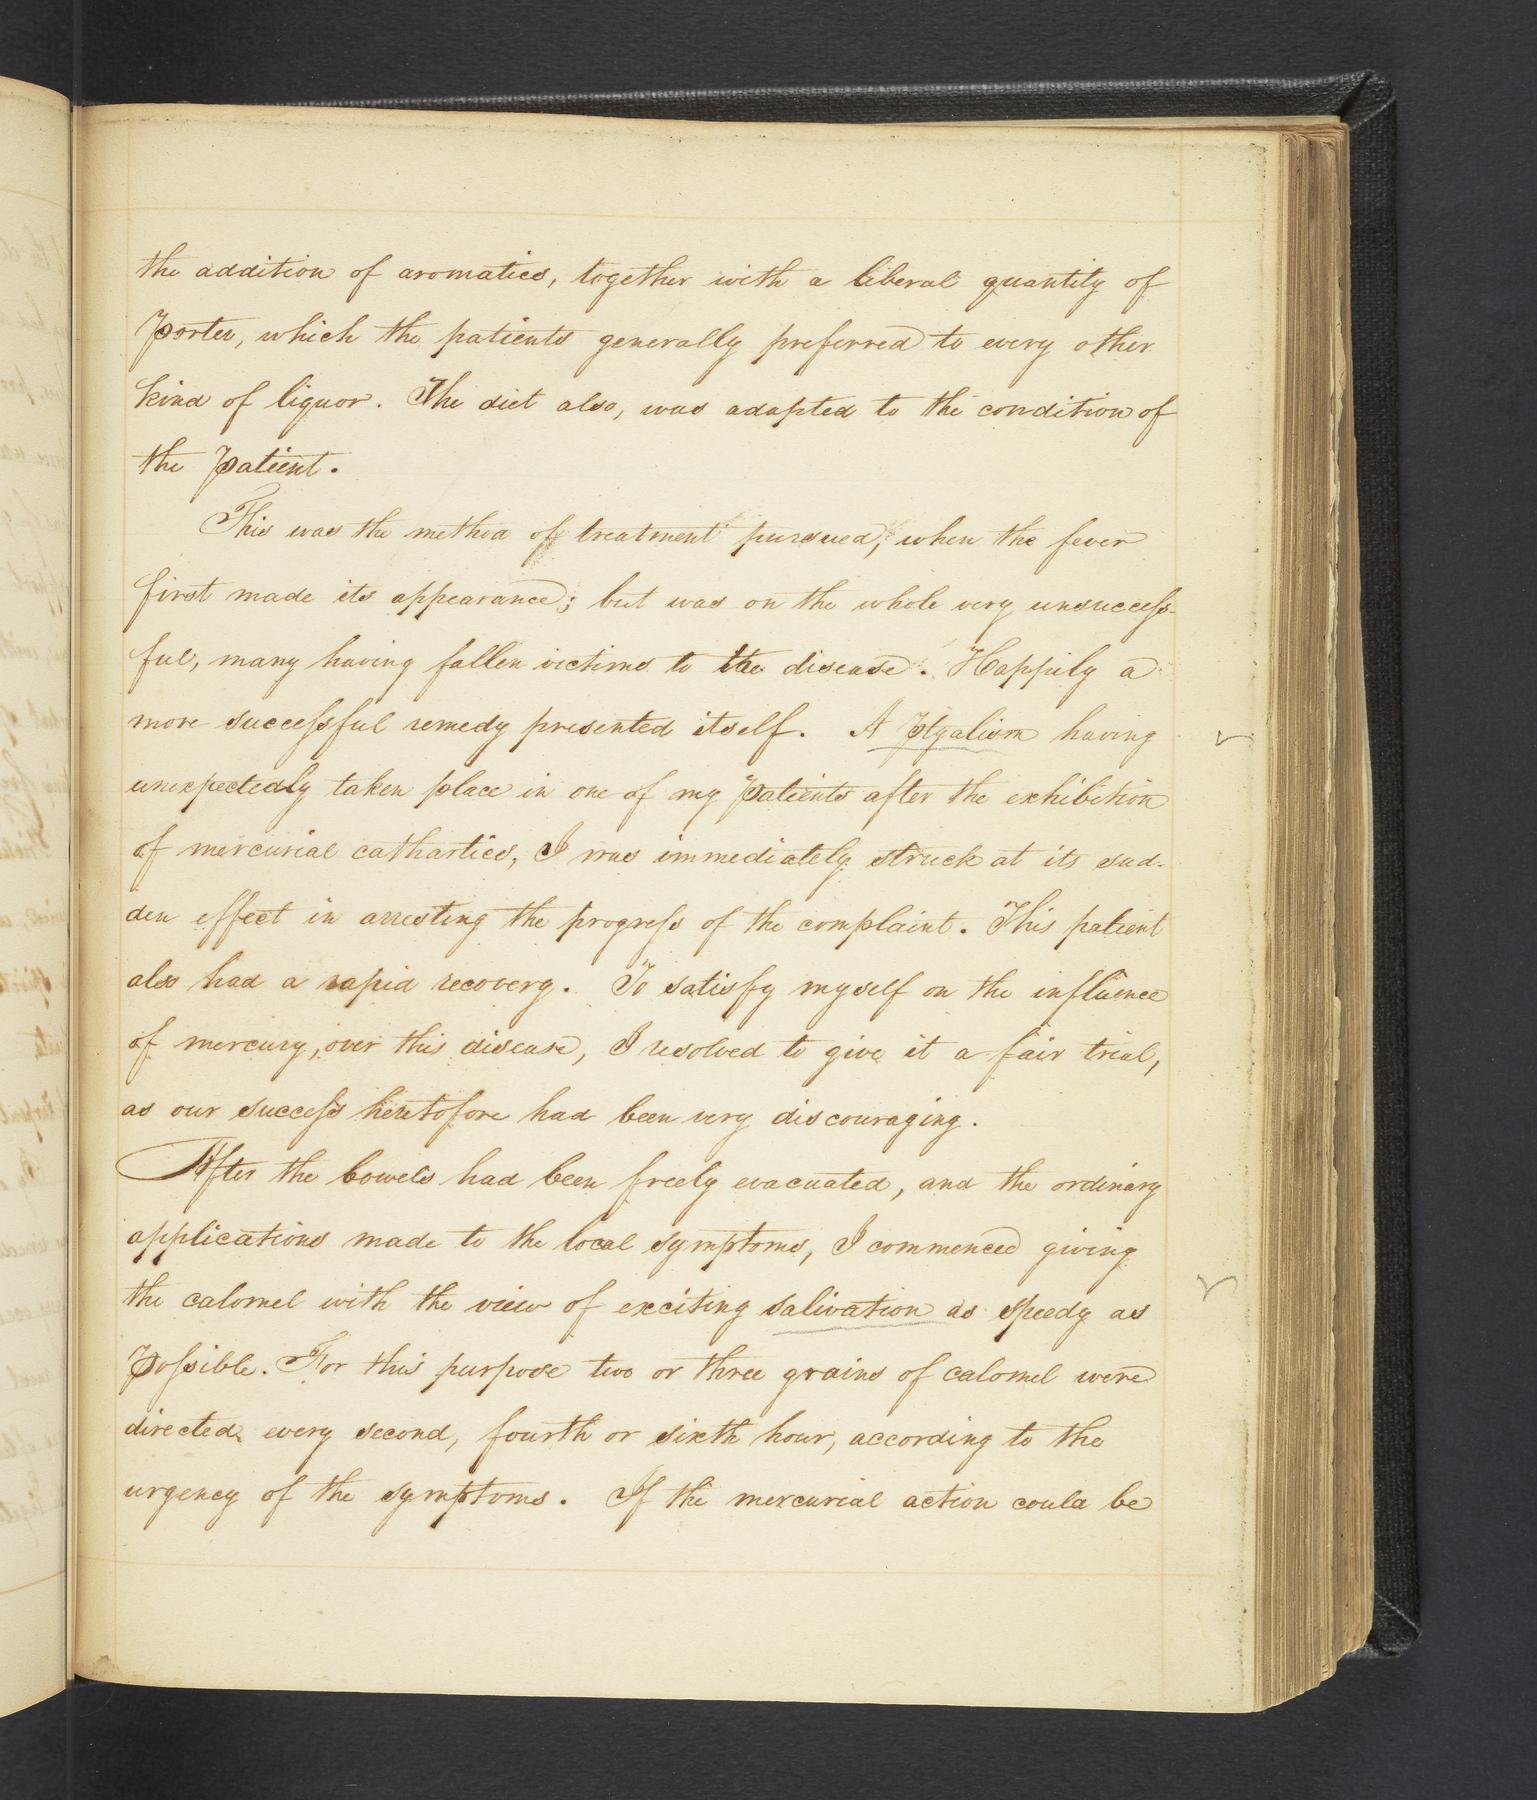 the addition of aromatics, together with a liberal quantity of
Porter, which the patients generally preferred to every other
kind of liquor. The diet also, was adapted to the condition of
the Patient.
This was the method of treatment pursued, when the fever
first made its appearance; but was on the whole very unsuccess-
ful, many having fallen victims to the disease. Happily a
more successful remedy presented itself. A Ptyalism having
unexpectedly taken place in one of my Patients after the exhibition
of mercurial cathartics, I was immediately struck at its sud-
den effect in arresting the progress of the complaint. This patient
also had a rapid recovery. To satisfy myself on the influence
of mercury, over this disease, I resolved to give it a fair trial,
as our success heretofore had been very discouraging.
After the bowels had been freely evacuated, and the ordinary
applications made to the local symptoms, I commenced giving
the calomel with the view of exciting salivation as speedy as
Possible. For this purpose two or three grains of calomel were
directed every second, fourth or sixth hour, according to the
urgency of the symptoms. If the mercurial action could be